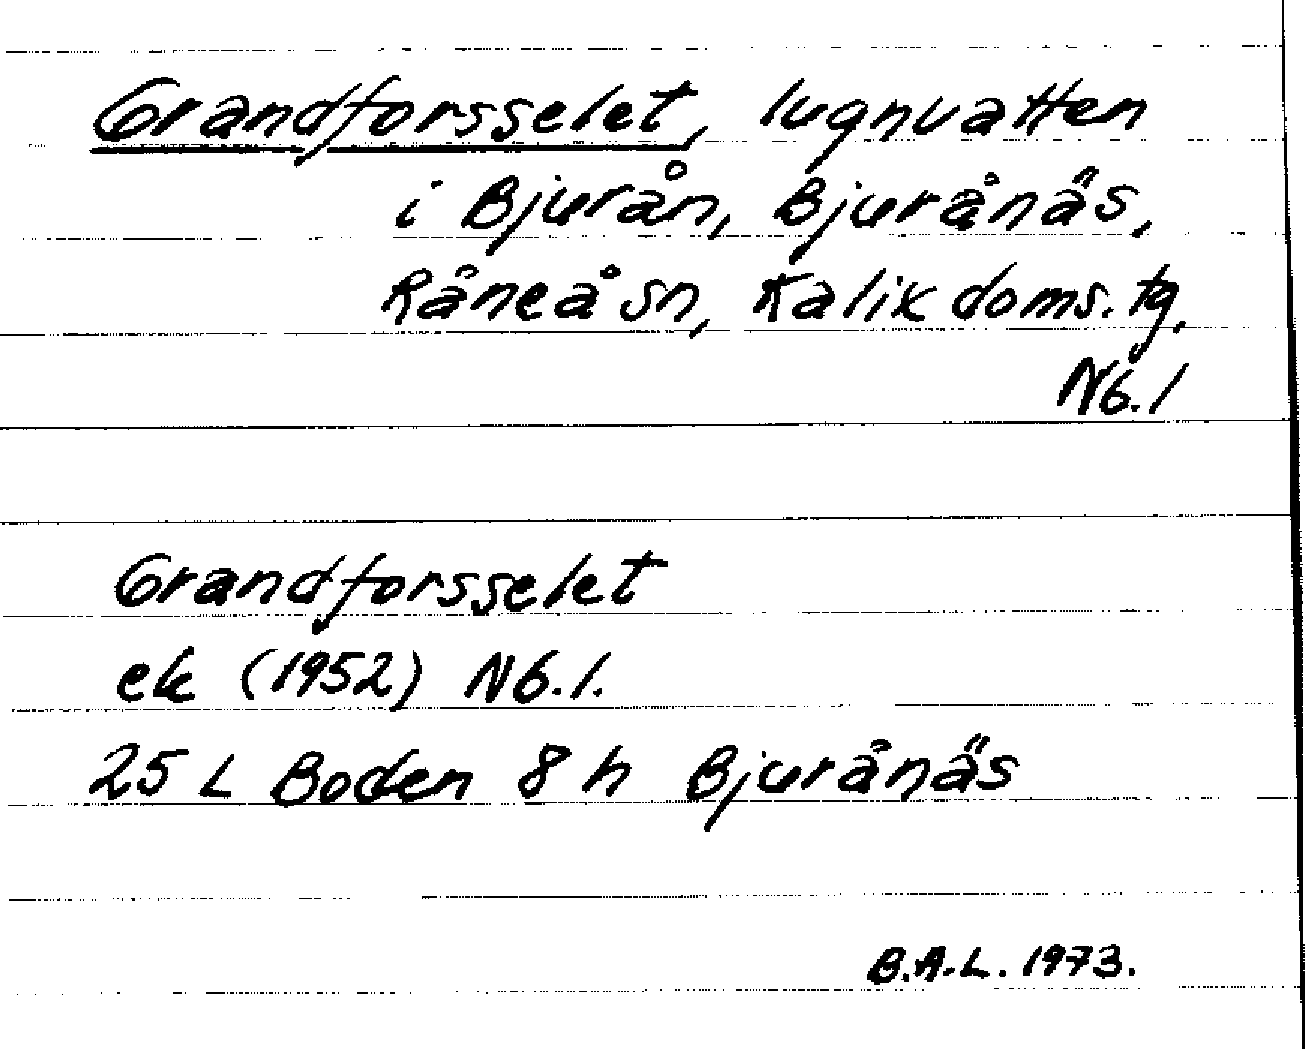 Grandforsselet, lugnvatten
i Bjurån, Bjurånäs,
Råneå sn, Kalix doms.tg,
Nb.l
Grandforsselet
ek (1952) Nb.l.
25 L Boden 8 h Bjurånäs
B.A.L. 1973.